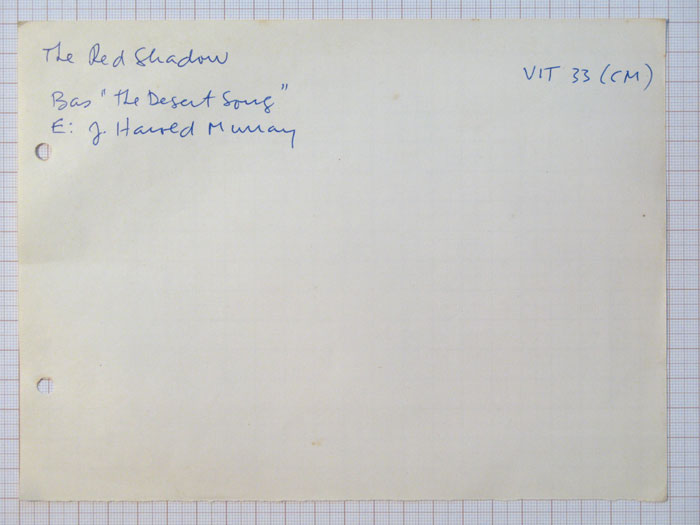 The Red Shadow
VIT 33 (CM)
Bas "The Desert Song"
E: J. Harold Murray